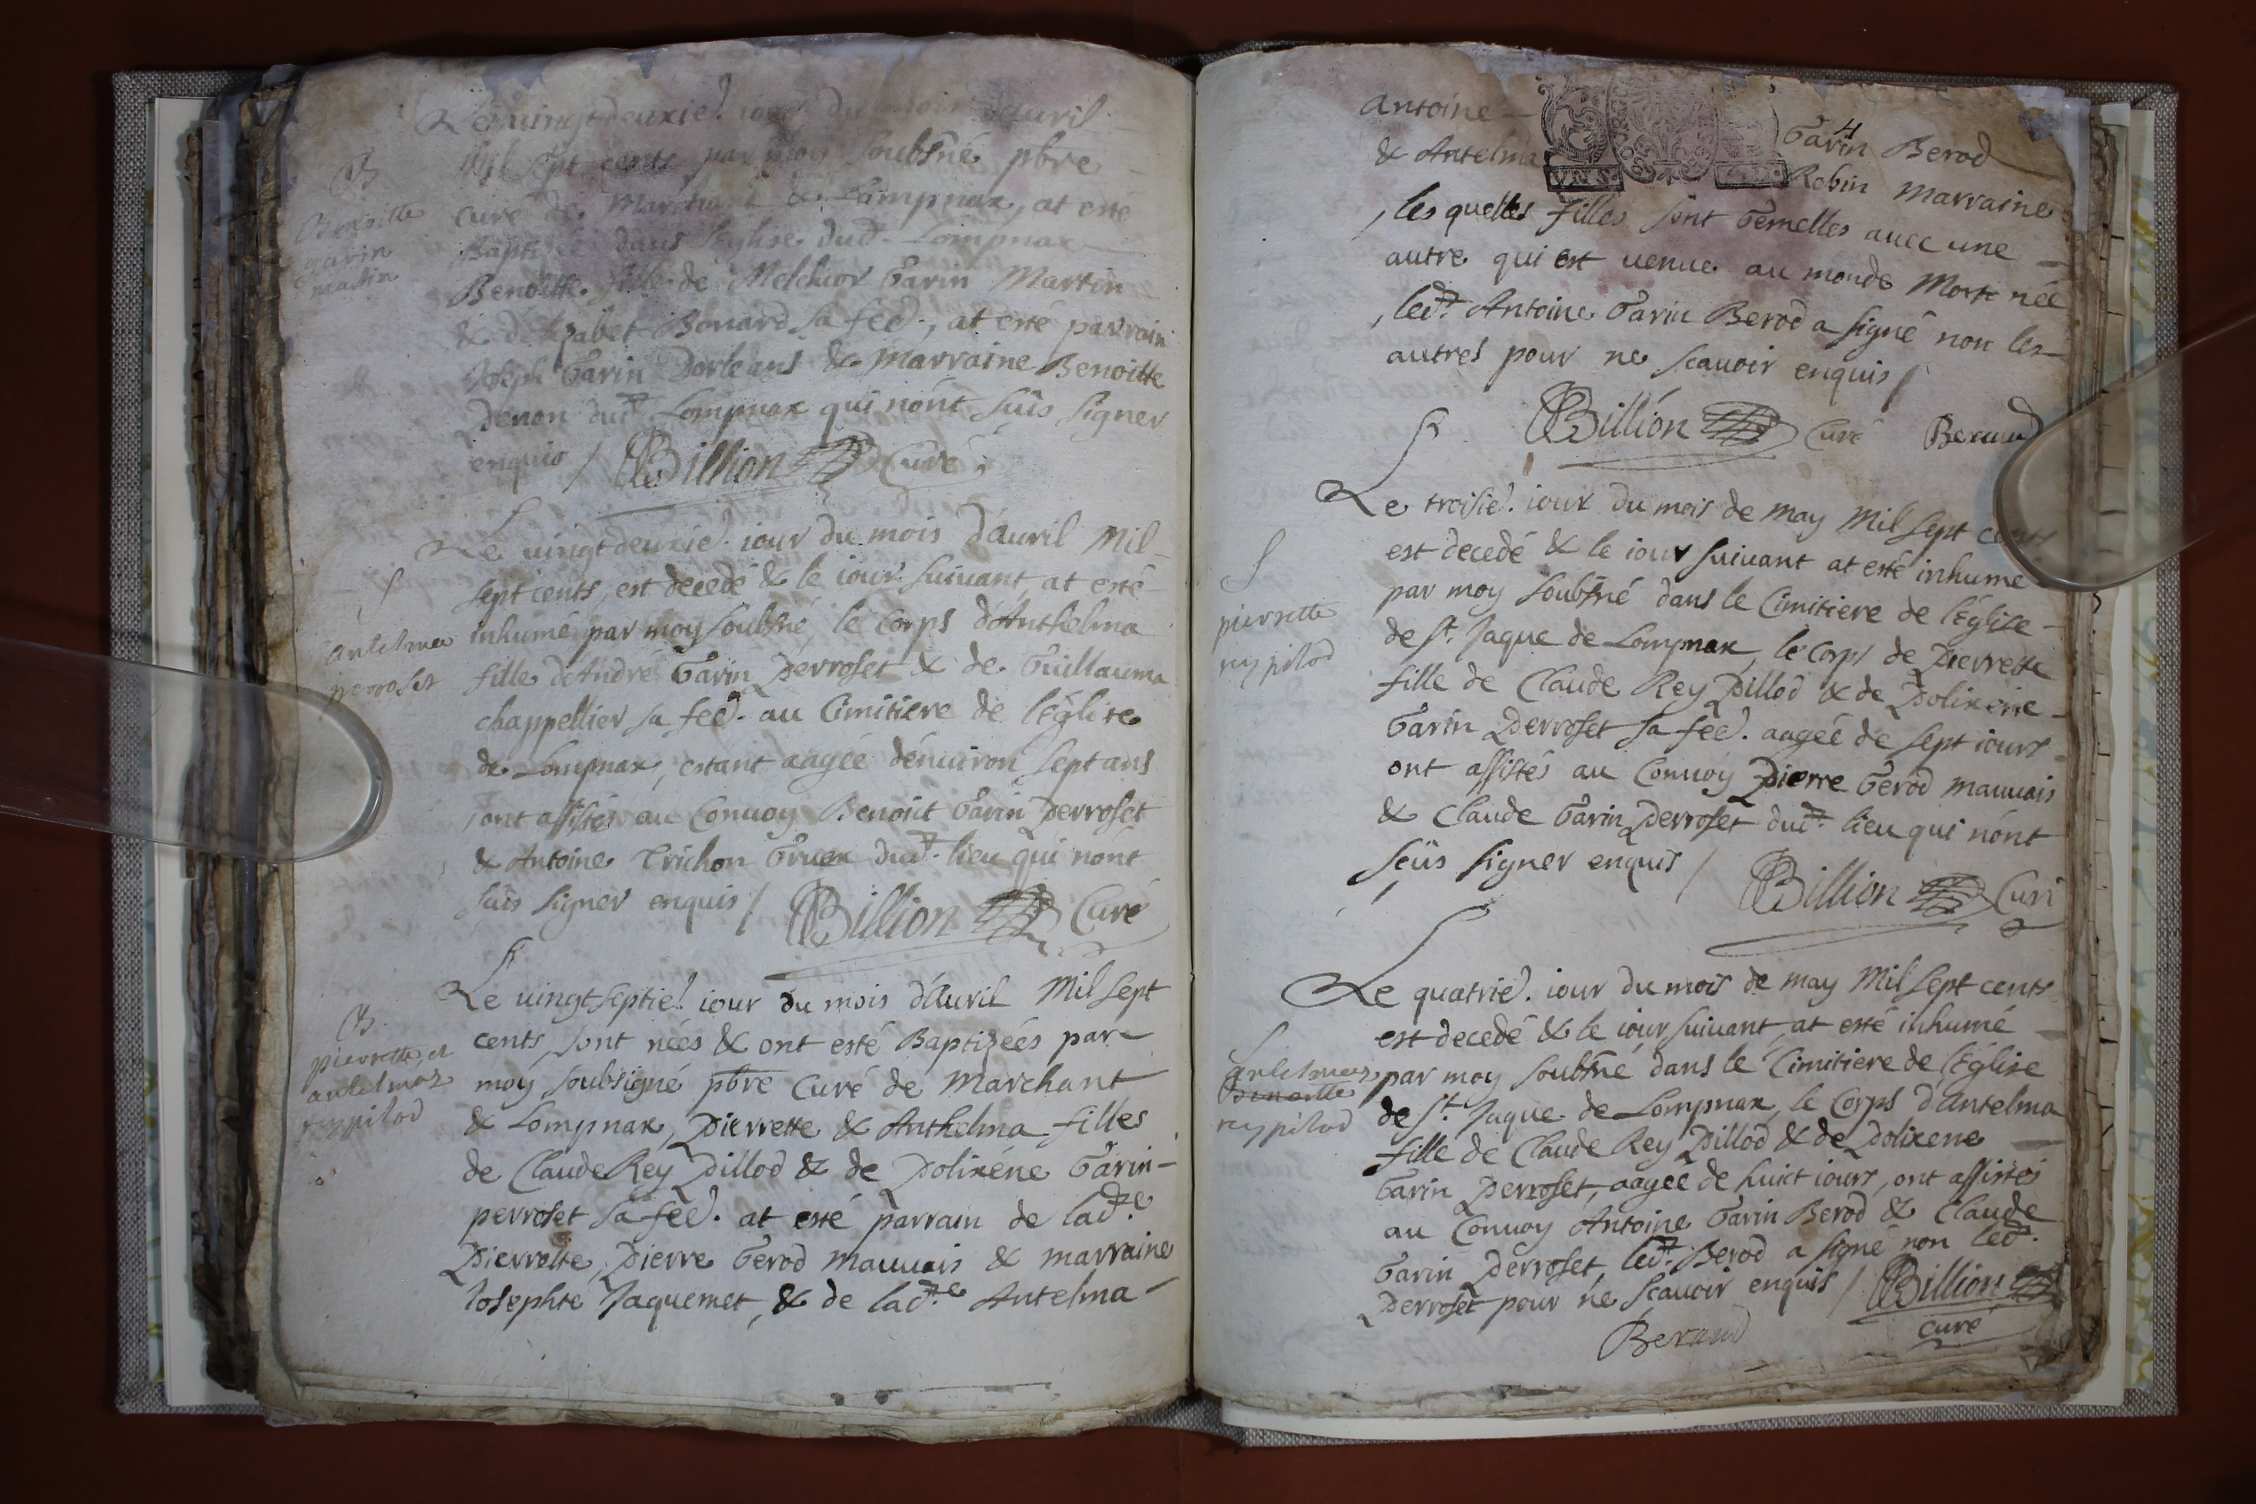 Le vingtdeuxie. iour du mois d'Auril
Mil sept cents par moy soubsné pbre
curé de Marchant & Lompnax, at esté
Baptisée dans l'eglise dud. Lompnax
Benoitte fille de Melchior Garin Martin
& d'Izabet Bonard sa feē., at esté parrain
Joseph Garin Dorleans & Marraine Benoitte
Denon dud.t Lompnax qui nónt sûs signer
enquis / Billion Curé
B
Benoitte
garin
martin
Le uingtdeuxie. iour du mois d'Auril Mil
sept cents, est decedé & le iour suiuant, at esté
inhumé par moy soubsné, le corps d'Anthelma
fille d'André Garin Perroset & de Guillauma
chappellier sa feē. au Cimitiere de l'Église
de Lompnax, estant aagée dénuiron sept ans
ont assistés au Conuoy Benoit Garin Perroset
& Antoine Trichon Gruex dud.t lieu qui nont
sûs signer enquis / Billion Curé
S
antelmaz
perroset
Le uingtseptie. iour du mois d'Auril Mil sept
cents, sont nées & ont esté Baptizées par
moy soubsigné pbre Curé de Marchant
& Lompnax, Pierrette & Anthelma filles
de Claude Rey Pillod & de Polixéne Garin
perroset sa feē. at esté parrain de lad.te
Pierrette, Pierre Gerod Mauuais & marraine
Josephte Jaquemet, & de lad.te Antelma
B
pierrette, et
antelmaz
reypilod
Antoine Garin Berod
4
& Antelma Robin Marraine
, les quelles filles sont Gemelles auec une
autre qui est uenue au monde Morte née
, led.t Antoine Garin Berod a signé non les
autres pour ne scauoir enquis /
Billion Curé Beraud
Le troisie. iour du mois de may Mil sept cents
est decedé & le iour suiuant at esté inhumé
par moy soubsné dans le Cimitiere de l'Église
de St. Jaque de Lompnax, le Corps de Pierrette
fille de Claude Rey Pillod & de Polixene
Garin Perroset sa feē. aagée de sept iours
ont assistés au Conuoy Pierre Gerod Mauuais
& Claude Garin Perroset dud.t lieu qui nónt
sçûs signer enquis / Billion Curé
S
pierrette
reypilod
Le quatrie. iour du mois de may Mil sept cents
est decedé & le iour suiuant, at esté inhumé
par moy soubsné dans le Cimitiere de l'Église
de St. Jaque de Lompnax, le Corps d'Antelma
fille de Claude Rey Pillod & de Polixene
Garin Perroset, aagée de huict iours, ont assistés
au Conuoy Antoine Garin Berod & Claude
Garin Perroset, led.t Berod a signé non led.
Perroset pour ne scauoir enquis / Billion
curé
Beraud
S
antelmaz
Benoitte
reypilod